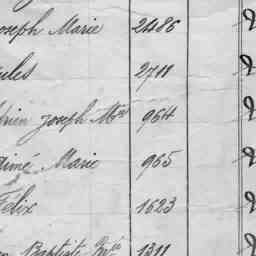 oseph Marie 2486
ules 2711
drien joseph Mie 964
Aimé Marie 965
Felix 1623
Baptiste 1311